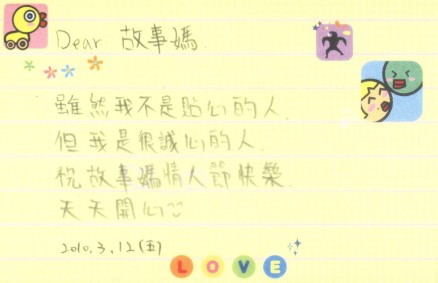 Dear 故事媽
雖然我不是貼心的人.
但我是很誠心的人.
祝故事媽情人節快樂.
天天開心
2010.3.12(五)
LOVE